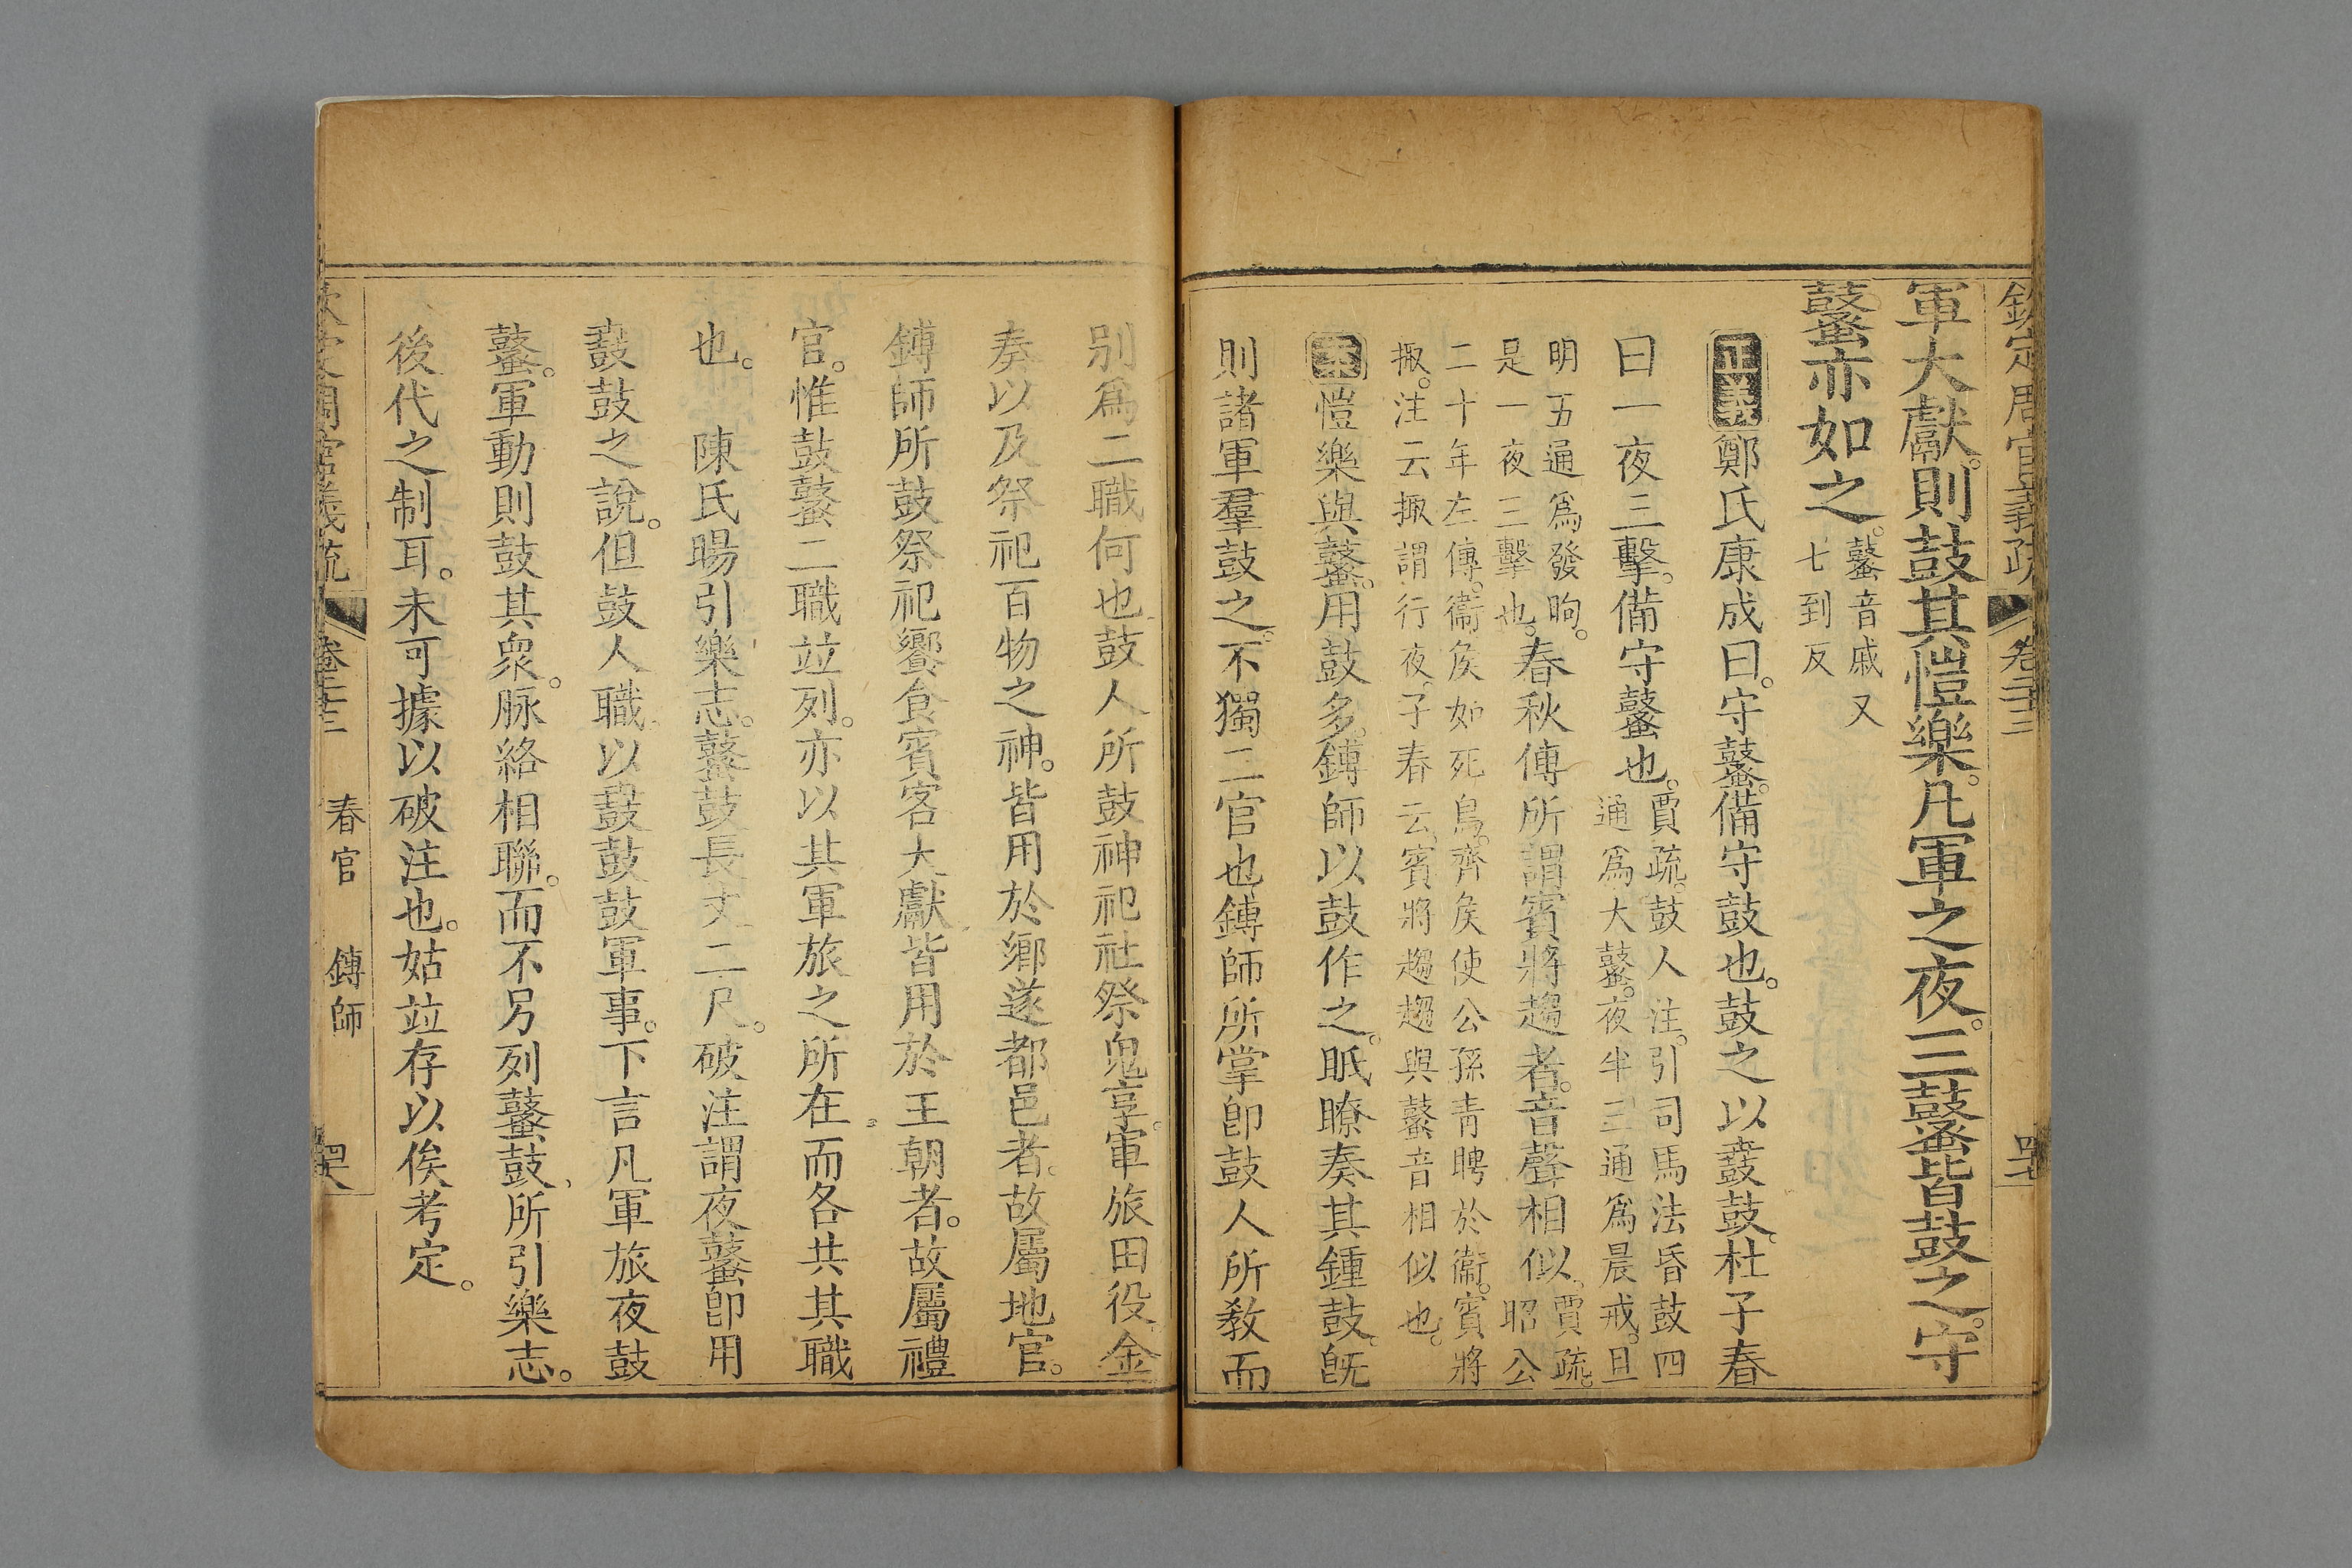 欽定周官義疏 卷二十三 罕
軍大獻則鼓其愷樂。凡軍之夜。三鼜皆鼓之。守
鼜亦如之。鼜音戚又
七到反
正義鄭氏康成曰。守鼜。備守鼓也。鼓之以鼖鼓。杜子春
曰一夜三擊。備守鼜也。賈疏。鼓人注。引司馬法昏鼓四
通爲大鼜。夜半三通爲晨戒。旦
明五通爲發昫。
是一夜三擊也。春秋傳所謂賓將趨者。音聲相似。賈疏。
昭公
二十年左傳。衞侯如死鳥。齊侯使公孫靑聘於衞。賓將
掫。注云掫謂行夜。子春云。賓將趨趨與鼜音相似也。
案愷樂與鼜。用鼓多。鎛師以鼓作之。眂瞭奏其鍾鼓。旣
則諸軍羣鼓之。不獨二官也鎛師所掌卽鼓人所敎而
別爲二職何也鼓人所鼓神祀社祭鬼享。軍旅田役。金
奏以及祭祀百物之神。皆用於鄉遂都邑者。故屬地官。
鎛師所鼓祭祀饗食賓客大獻皆用於王朝者。故屬禮
官。惟鼓鼜二職竝列。亦以其軍旅之所在而各共其職
也。 陳氏暘引樂志。鼜鼓長丈二尺。破注謂夜鼜卽用
鼖鼓之說。但鼓人職以鼖鼓鼓軍事。下言凡軍旅夜鼓
鼜。軍動則鼓其衆。脉絡相聯。而不另列鼜鼓、所引樂志。
後代之制耳。未可據以破注也。姑竝存以俟考定。
欽定周官義疏 卷二十三 春官 鎛師